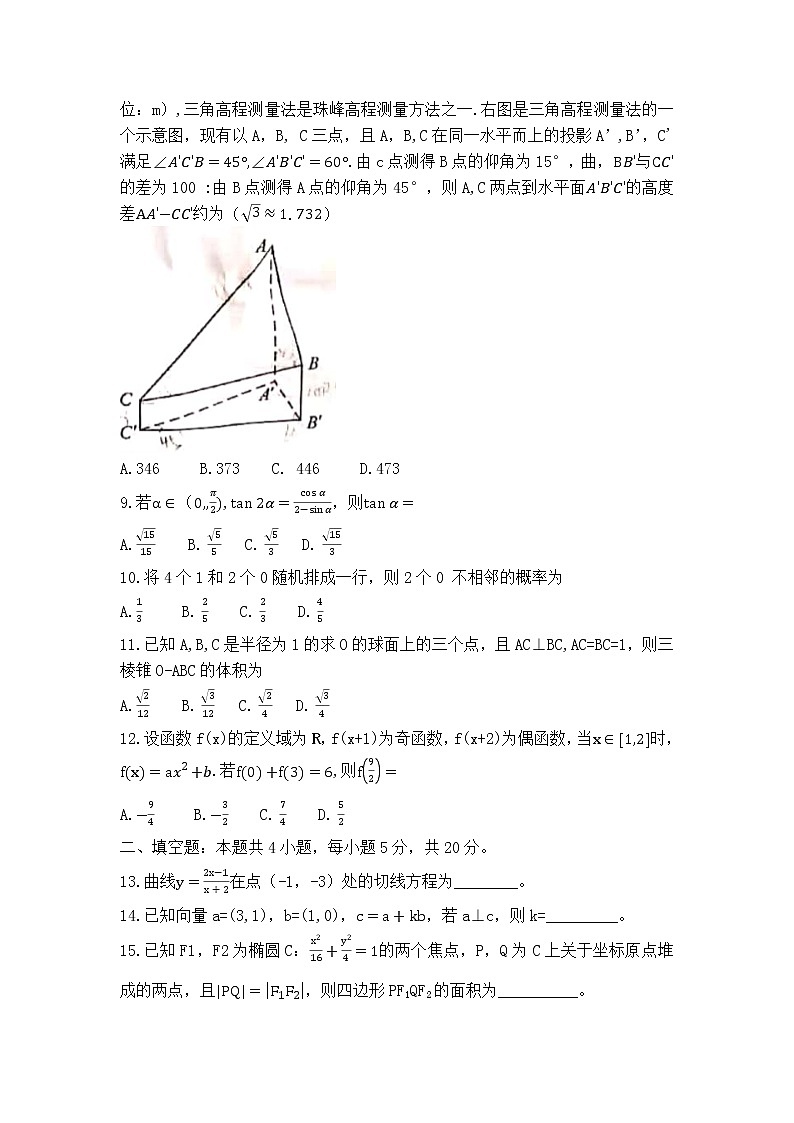 位：m）,三角高程测量法是珠峰高程测量方法之一.右图是三角高程测量法的一
个示意图，现有以A，B, C三点，且A，B,C在同一水平而上的投影A’,B’，C'
满足∠A'C'B＝45°,∠A'B'C'＝60°.由c点测得B点的仰角为15°，曲，BB'与CC'
的差为100 :由B点测得A点的仰角为45°，则A,C两点到水平面A'B'C'的高度
差AA'−CC'约为（√3≈1.732）
A
B
C
A'
C'
B'
A.346 B.373 C. 446 D.473
9.若α∈（0,,π/2),tan 2α＝cos α/(2−sin α)，则tan α＝
A.√15/15 B.√5/5 C.√5/3 D.√15/3
10.将4个1和2个0随机排成一行，则2个0 不相邻的概率为
A.1/3 B.2/5 C.2/3 D.4/5
11.已知A,B,C是半径为1的求O的球面上的三个点，且AC⊥BC,AC=BC=1，则三
棱锥O-ABC的体积为
A.√2/12 B.√3/12 C.√2/4 D.√3/4
12.设函数f(x)的定义域为R，f(x+1)为奇函数，f(x+2)为偶函数，当x∈[1,2]时，
f(x)＝ax²+b.若f(0)+f(3)＝6,则f(9/2)＝
A.−9/4 B.−3/2 C.7/4 D.5/2
二、填空题：本题共4小题，每小题5分，共20分。
13.曲线y＝(2x−1)/(x+2)在点（-1，-3）处的切线方程为________。
14.已知向量a=(3,1)，b=(1,0)，c＝a＋kb，若a⊥c，则k=_________。
15.已知F1，F2为椭圆C：x²/16＋y²/4＝1的两个焦点，P，Q为C上关于坐标原点堆
成的两点，且|PQ|＝|F₁F₂|，则四边形PF₁QF₂的面积为__________。